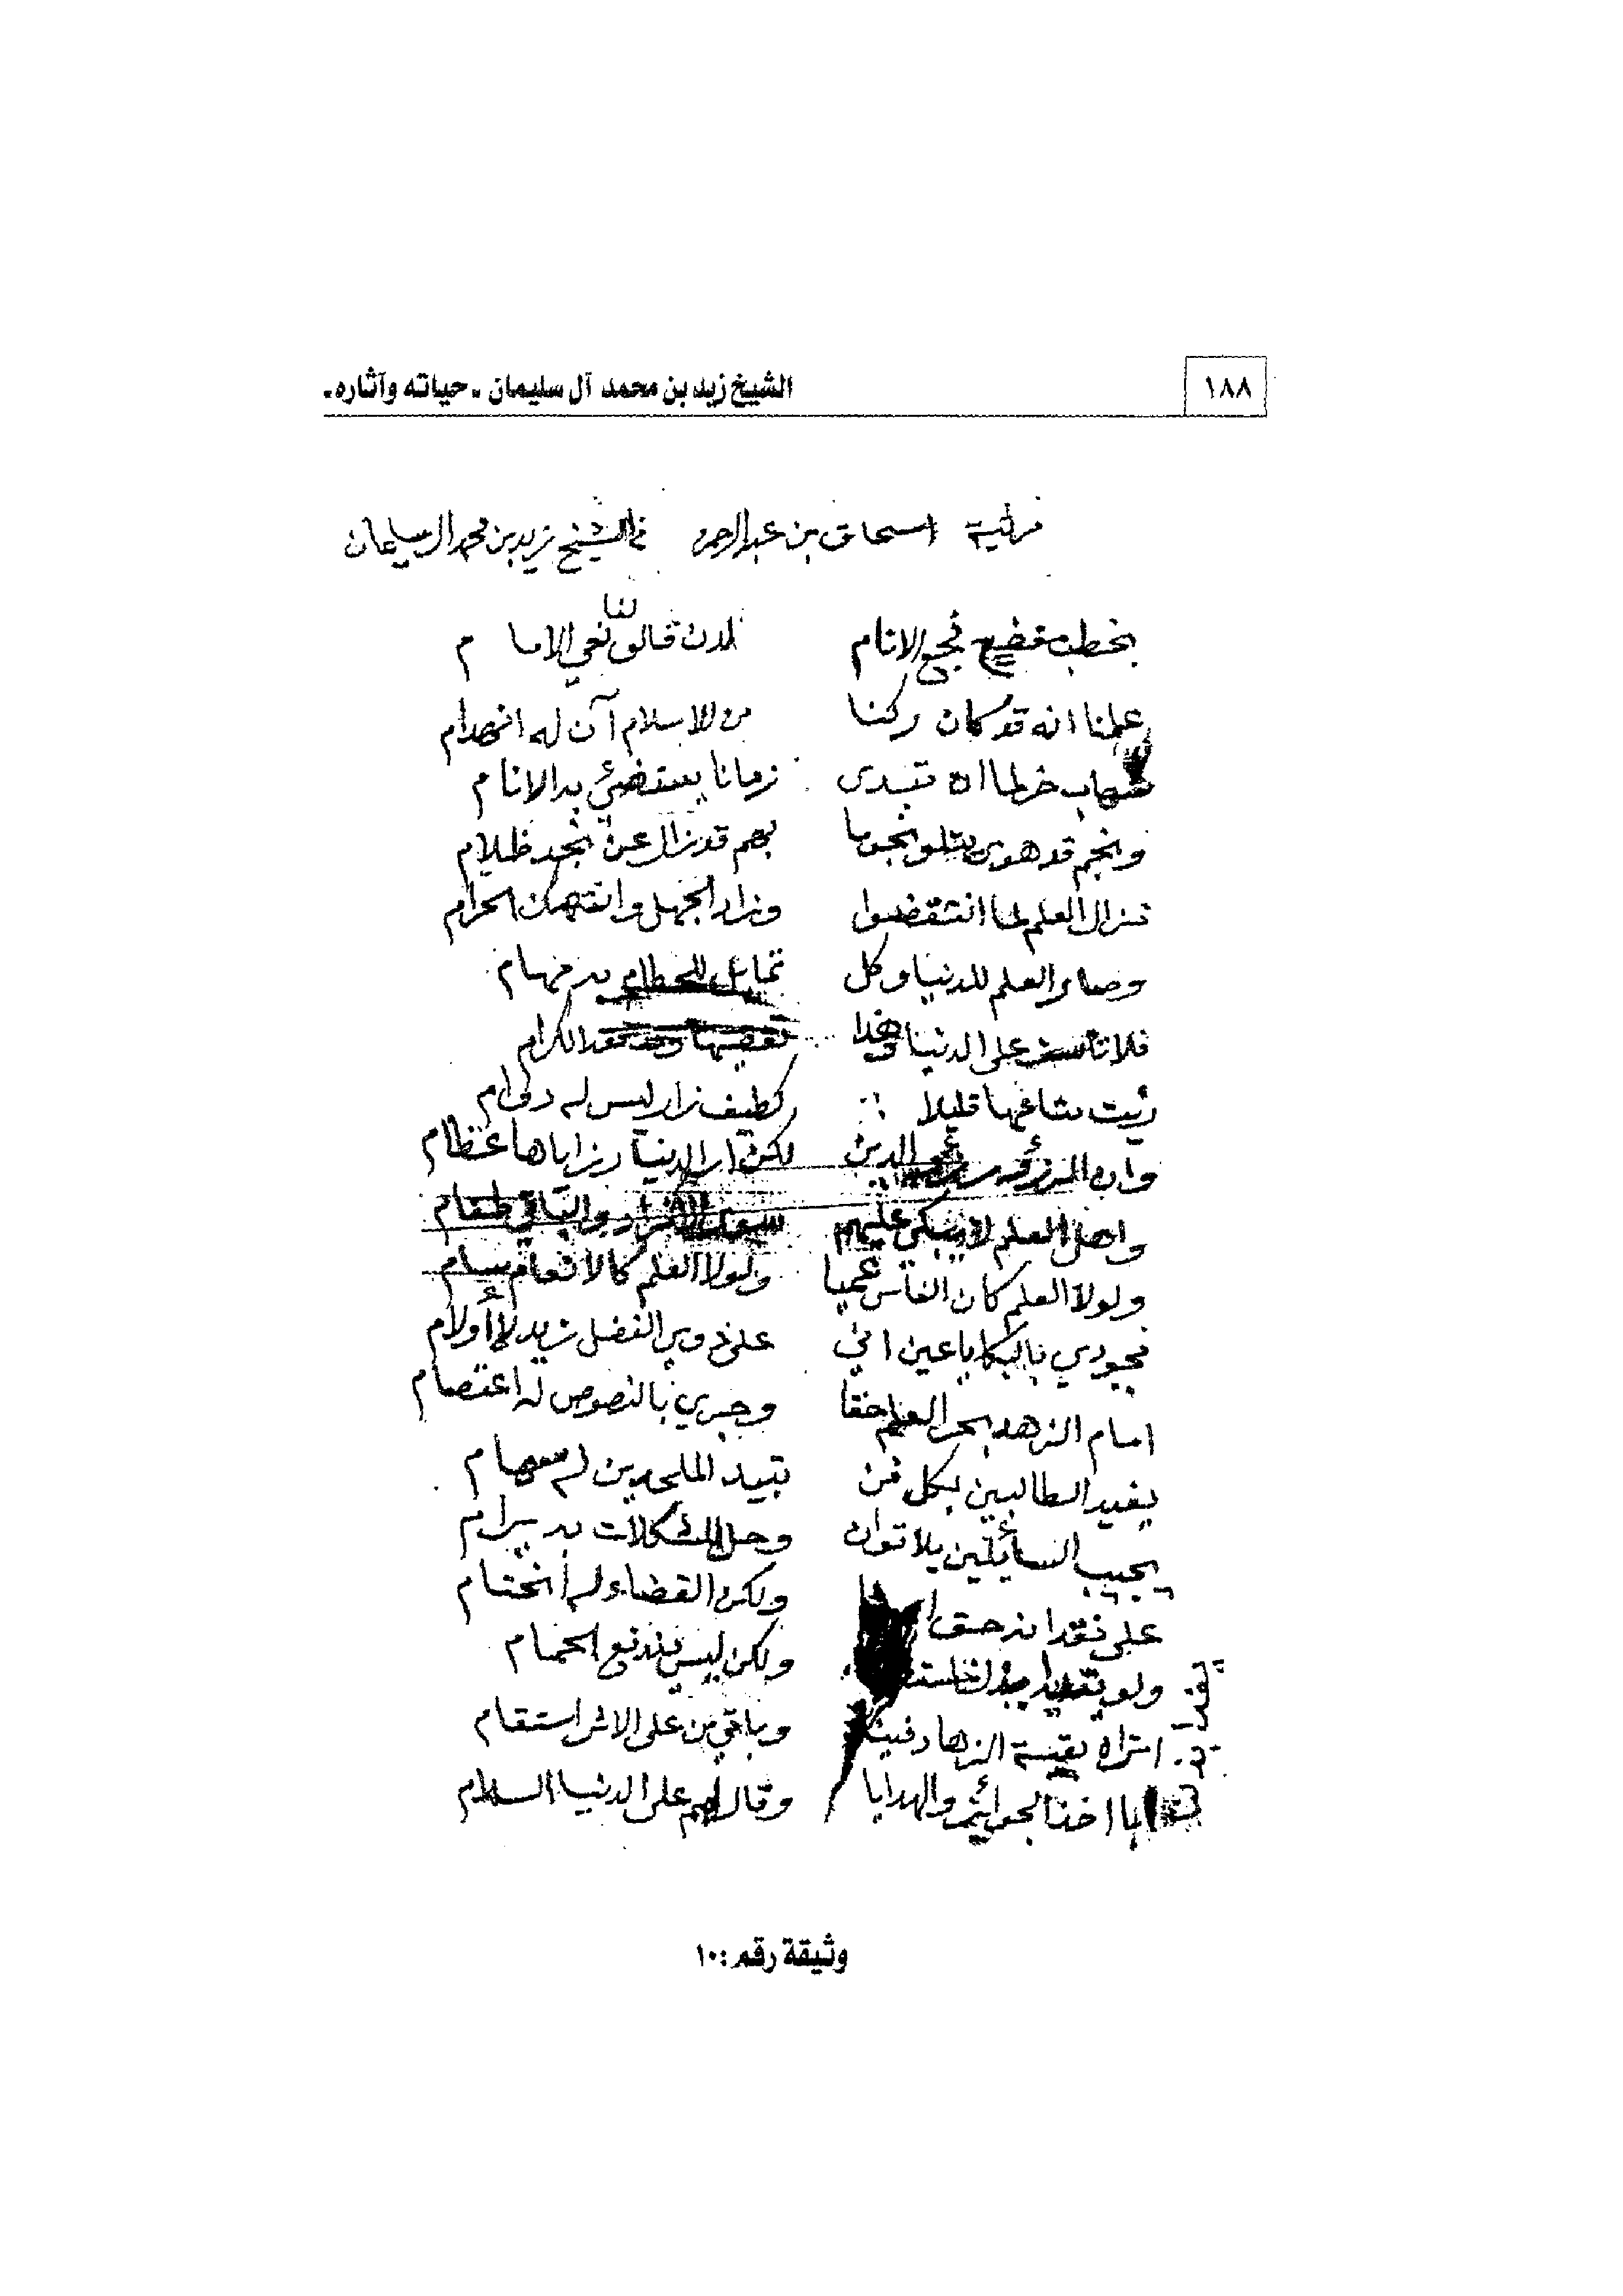 ١٨٨
الشيخ زيد بن محمد آل سليمان ـ حياته وآثاره ـ
مرثية اسحاق بن عبدالرحمن في الشيخ زيد بن محمد ال سليمان
بخطب مفضع فجع الانام لدن قالوا لنا نعي الاما م
علمنا انه قد كان ركنا من للاسلام آن له انهدام
شهاب خر لما ان تبدى زمانا يستضئ به الانام
ونجم قد هوى يتلو نجوما بهم قد زال عن نجد ظلام
فزال العلم لما انقضوا وزاد الجهل وانتهك الحرام
وصار العلم للدنيا وكل تمايل للحطام به مهام
فلا تأسف على الدنيا وهذا الكرام
رئيت متاعها قليلا كطيف زار ليس له دوام
وان المرزؤ الدين لكن دار الدنيا رزاياها عظام
واهل العلم لا يبكى عليهم سوى الافراد والباقي طغام
ولولا العلم كان الناس عميا ولولا العلم كالانعام سام
فجودي بالبكا يا عين اني على ذوي الفضل زيد لا أولام
امام الزهد بحر العلم حقا وحبري بالنصوص له اعتصام
يفيد الطالبين بكل فن تبيد الملحدين له سهام
يجيب السائلين بلا توان وحل المشكلات به يرام
على فقدانه ولكن القضاء له انحتام
ولو يفدى ولكن ليس يندفع الحمام
امتراه بقية الزهاد فينا وباقي من على الاثر استقام
ابا اخذ الجوائز والهدايا وقال لهم على الدنيا السلام
وثيقة رقم: ١٠